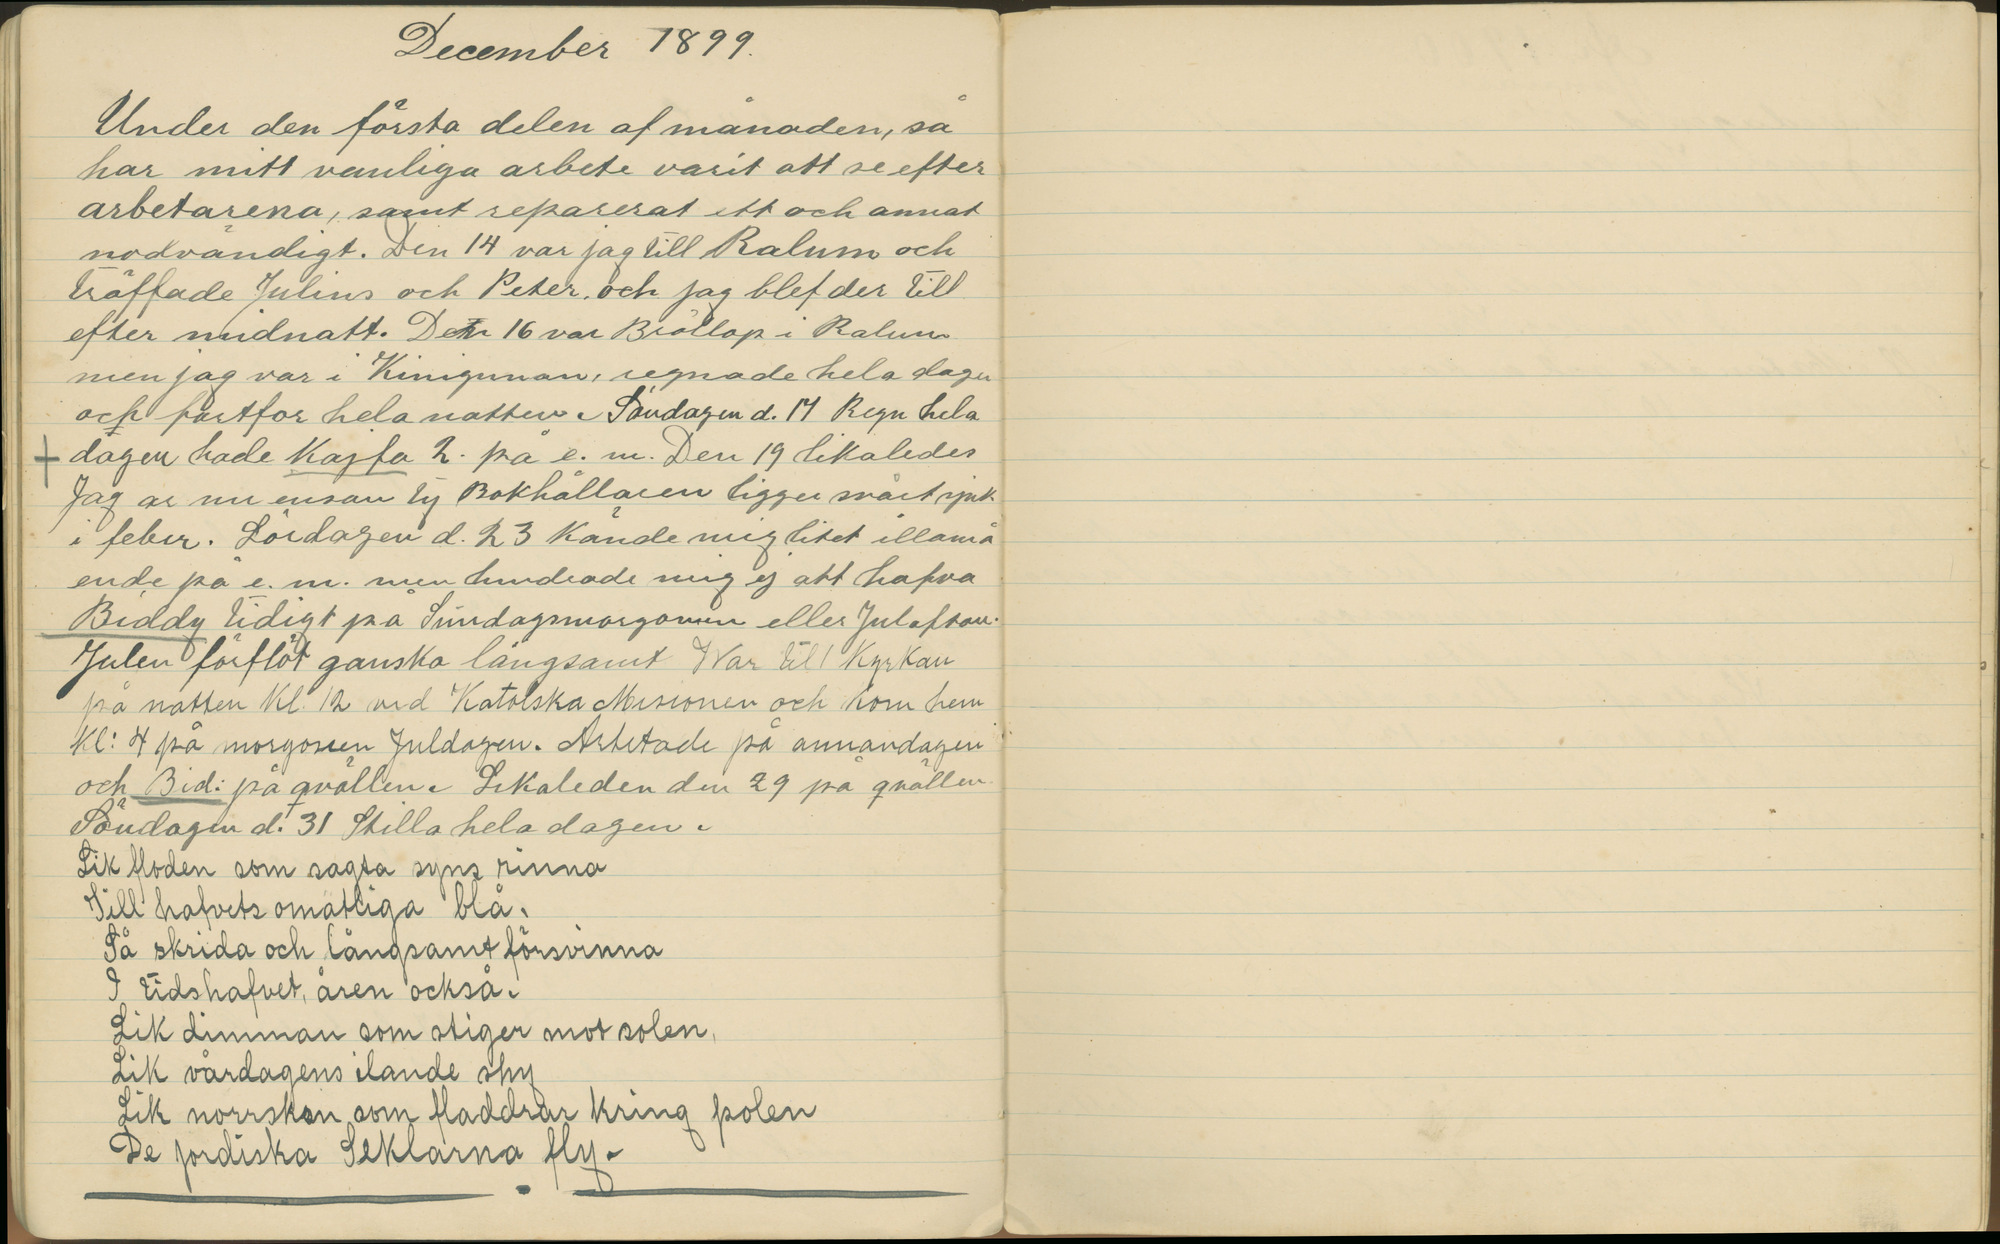 December 1899.
Under den första delen af månaden, så
har mitt vanliga arbete varit att se efter
arbetarena, samt reparerat ett och annat
nödvändigt. Den 14 var jag till Ralum och
träffade Julius och Peter. och jag blef der till
efter midnatt. Den 16 var Bröllop i Ralum
men jag var i Kinigunan, regnade hela dagen
och fortfor hela natten. Söndagen d. 17 Regn hela
dagen hade Kajfa 2. på e. m. Den 19 likaledes
Jag ar nu ensan ty Bokhållaren ligger svårt sjuk
i feber. Lördagen d. 23 Kände mig litet illamå
ende på e. m. men hindrade mig ej att hafva
Biddy tidigt på Söndagsmorgonen eller Julafton.
Julen förflöt ganska långsamt War till Kyrkan
på natten Kl. 12 vid Katolska Misionen och kom hem
Kl: 4 på morgonen Juldagen. Arbetade på annandagen
och Bid: på qvällen. Likaleden den 29 på qvällen
Söndagen d. 31 Stilla hela dagen.
Lik floden som sagta syns rinna
Till hafvets omätliga blå.
Så skrida och långsamt försvinna
I tidshafvet, åren också.
Lik dimman som stiger mot solen,
Lik vårdagens ilande sky
Lik norrsken som fladdrar kring polen
De jordiska Seklarna fly.